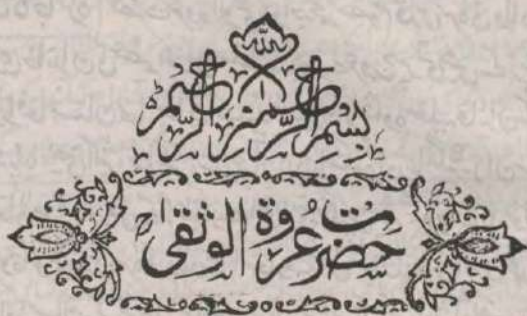 بِسْمِ اللهِ الرَّحْمٰنِ الرَّحِيْمِ
حضرت عُروۃ الوثقیٰ